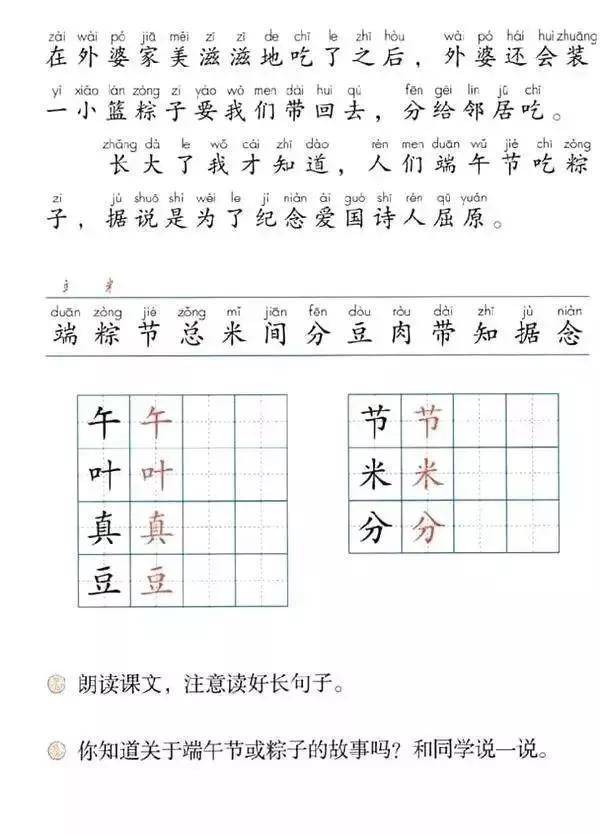 zài wài pó jiā měi zī zī de chī le zhī hòu wài pó hái huì zhuāng
在外婆家美滋滋地吃了之后，外婆还会装
yì xiǎo lán zòng zi yào wǒ men dài huí qù fēn gěi lín jū chī
一小篮粽子要我们带回去，分给邻居吃。
zhǎng dà le wǒ cái zhī dào rén men duān wǔ jié chī zòng
长大了我才知道，人们端午节吃粽
zi jù shuō shì wèi le jì niàn ài guó shī rén qū yuán
子，据说是为了纪念爱国诗人屈原。
duān zòng jié zǒng mǐ jiān fēn dòu ròu dài zhī jù niàn
端粽节总米间分豆肉带知据念
午午 节节
叶叶 米米
真真 分分
豆豆
朗读课文，注意读好长句子。
你知道关于端午节或粽子的故事吗？和同学说一说。